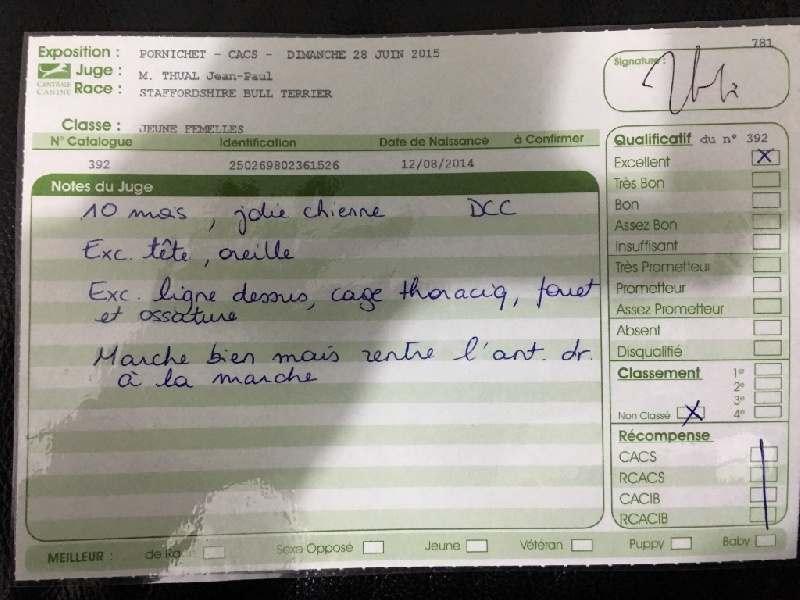 781
Exposition : PORNICHET - CACS - DIMANCHE 28 JUIN 2015
Juge : M. THUAL Jean-Paul
CENTRALE CANINE
Race : STAFFORDSHIRE BULL TERRIER
Signature :
Classe : JEUNE FEMELLES
N° Catalogue Identification Date de Naissance à Confirmer
392 250269802361526 12/08/2014
Notes du Juge
10 mois, jolie chienne DCC
Exc. tête, oreille
Exc. ligne dessus, cage thoraciq, fouet
et ossature
Marche bien mais rentre l'ant. dr.
à la marche
Qualificatif du n° 392
Excellent X
Très Bon
Bon
Assez Bon
Insuffisant
Très Prometteur
Prometteur
Assez Prometteur
Absent
Disqualifié
Classement 1e
2e
3e
Non Classé X 4e
Récompense
CACS
RCACS
CACIB
RCACIB
MEILLEUR : de Race Sexe Opposé Jeune Vétéran Puppy Baby